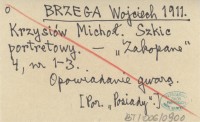 o BRZEGA Wojciech 1911.
Krzysiów Michoł. Szkic
portretowy. — „Zakopane"
4, nr 1-3.
Opowiadanie gwarą.
[Por. „Posiady".]